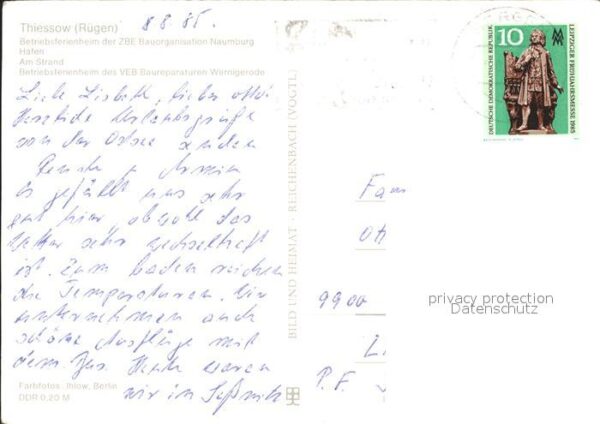 Thiessow (Rügen)
8.8.85.
Betriebsferienheim der ZBE Bauorganisation Naumburg
Hafen
Am Strand
Betriebsferienheim des VEB Baureparaturen Wernigerode
Liebe Lisbeth, lieber Otto
Herzliche Urlaubsgrüße
von der Ostsee senden
Renate + Armin
Es gefällt uns sehr
gut hier, obwohl das
Wetter sehr wechselhaft
ist. Zum baden reichen
die Temperaturen. Wir
unternehmen auch
schöne Ausflüge mit
dem Bus. Heute waren
wir in Saßnitz
Farbfotos: Ihlow, Berlin
DDR 0,20 M
BILD UND HEIMAT · REICHENBACH (VOGTL)
10
DEUTSCHE DEMOKRATISCHE REPUBLIK
LEIPZIGER FRÜHJAHRSMESSE 1985
Fam
Ott
9900
P.F.
privacy protection
Datenschutz